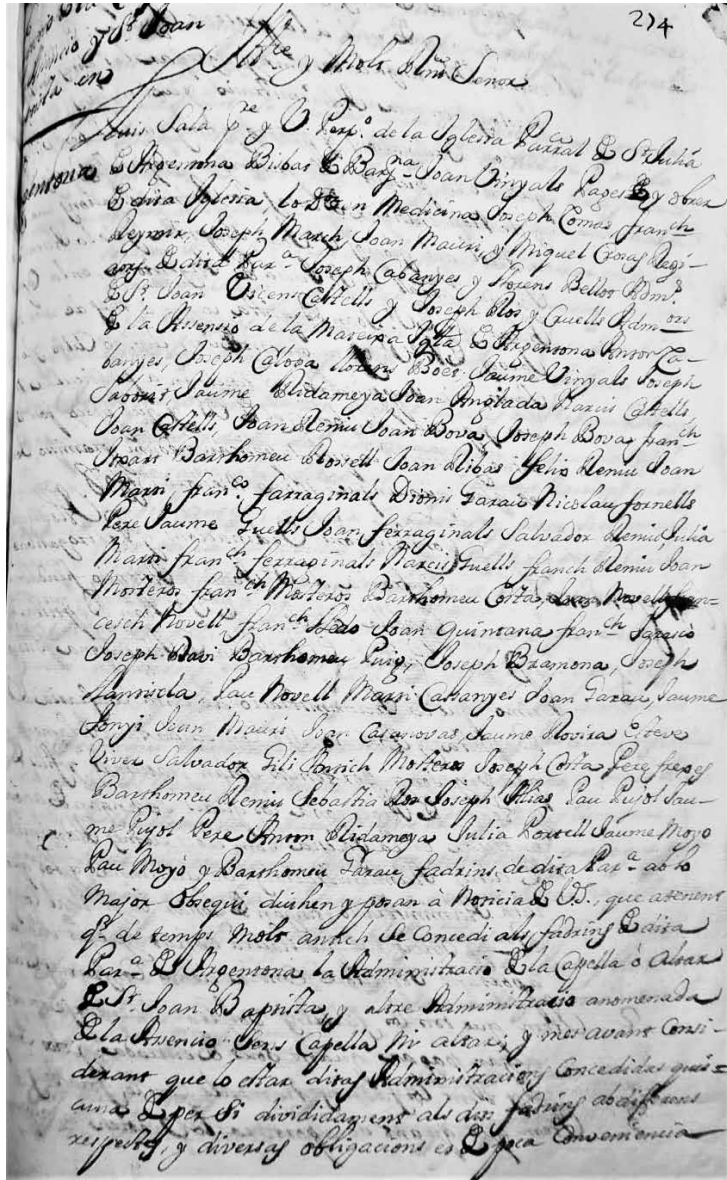 274
y St. Joan
en
Iltre y Molt Rnt Senor
Lluis Sala Pre y V. Perpo. de la Iglesia Parral de St. Julia
de Argentona Bisbat de Barna Joan Vinyals Pages y obrer
de dita Iglesia, lo Dr. en Medicina Joseph Comas, franch
Joseph March, Joan Mauri, y Miquel Regi-
dors de dita Para. Joseph Cabanyes y Llorens Bellot Adms.
de St. Joan Vicens Castells y Joseph Ros y Guells Adm-ors
de la Assensio de la Mateixa Iglia de Argentona Anton Ca-
banyes, Joseph Llorens Boet Jaume Vinyals Joseph
Jaume Ridameya Joan Anglada Narcis Castells,
Joan Castells, Joan Reniu Joan Bova, Joseph Bova franch
Barthomeu Rossell Joan Ribas felix Reniu Joan
Marti franco. farraginals Dionis Garau Nicolau fornells
Pere Jaume Guells Joan ferraginals Salvador Reniu, Julia
Marti franch ferraginals Narcis Guells franch Reniu Joan
Morteros franch Morteros Barthomeu Costa, Joan Novell fran-
cesch Novell, franch Joan Quintana franch
Joseph Ravi Barthomeu Puig, Joseph Bramona, Joseph
Pau Novell Marti Cabanyes Joan Garau, Jaume
Joan Mauri Joan Casanovas, Jaume Rovira Esteve
Viver Salvador Gili Morteros Joseph Costa Pere
Barthomeu Reniu Sebastia Ros Joseph Illias Pau Pujol Jau-
me Pujol Pere Anton Ridameya Julia Jaume Moyo
Pau Moyo y Barthomeu Garau fadrins de dita Para. ab lo
Major Obsequi diuhen y posan à Noticia de VS., que atenent
qe. de temps Molt antich se Concedi als fadrins de dita
Para. de Argentona la Administracio de la Capella ò Altar
de St. Joan Baptista, y altre Administracio anomenada
de la Asencio sens Capella Ni altar; y mes avant Consi-
derant que lo estar ditas Administracions Concedidas quis=
cuna de per Si divididament als dits fadrins ab differens
respectes, y diversas obligacions es de poca Conveniencia